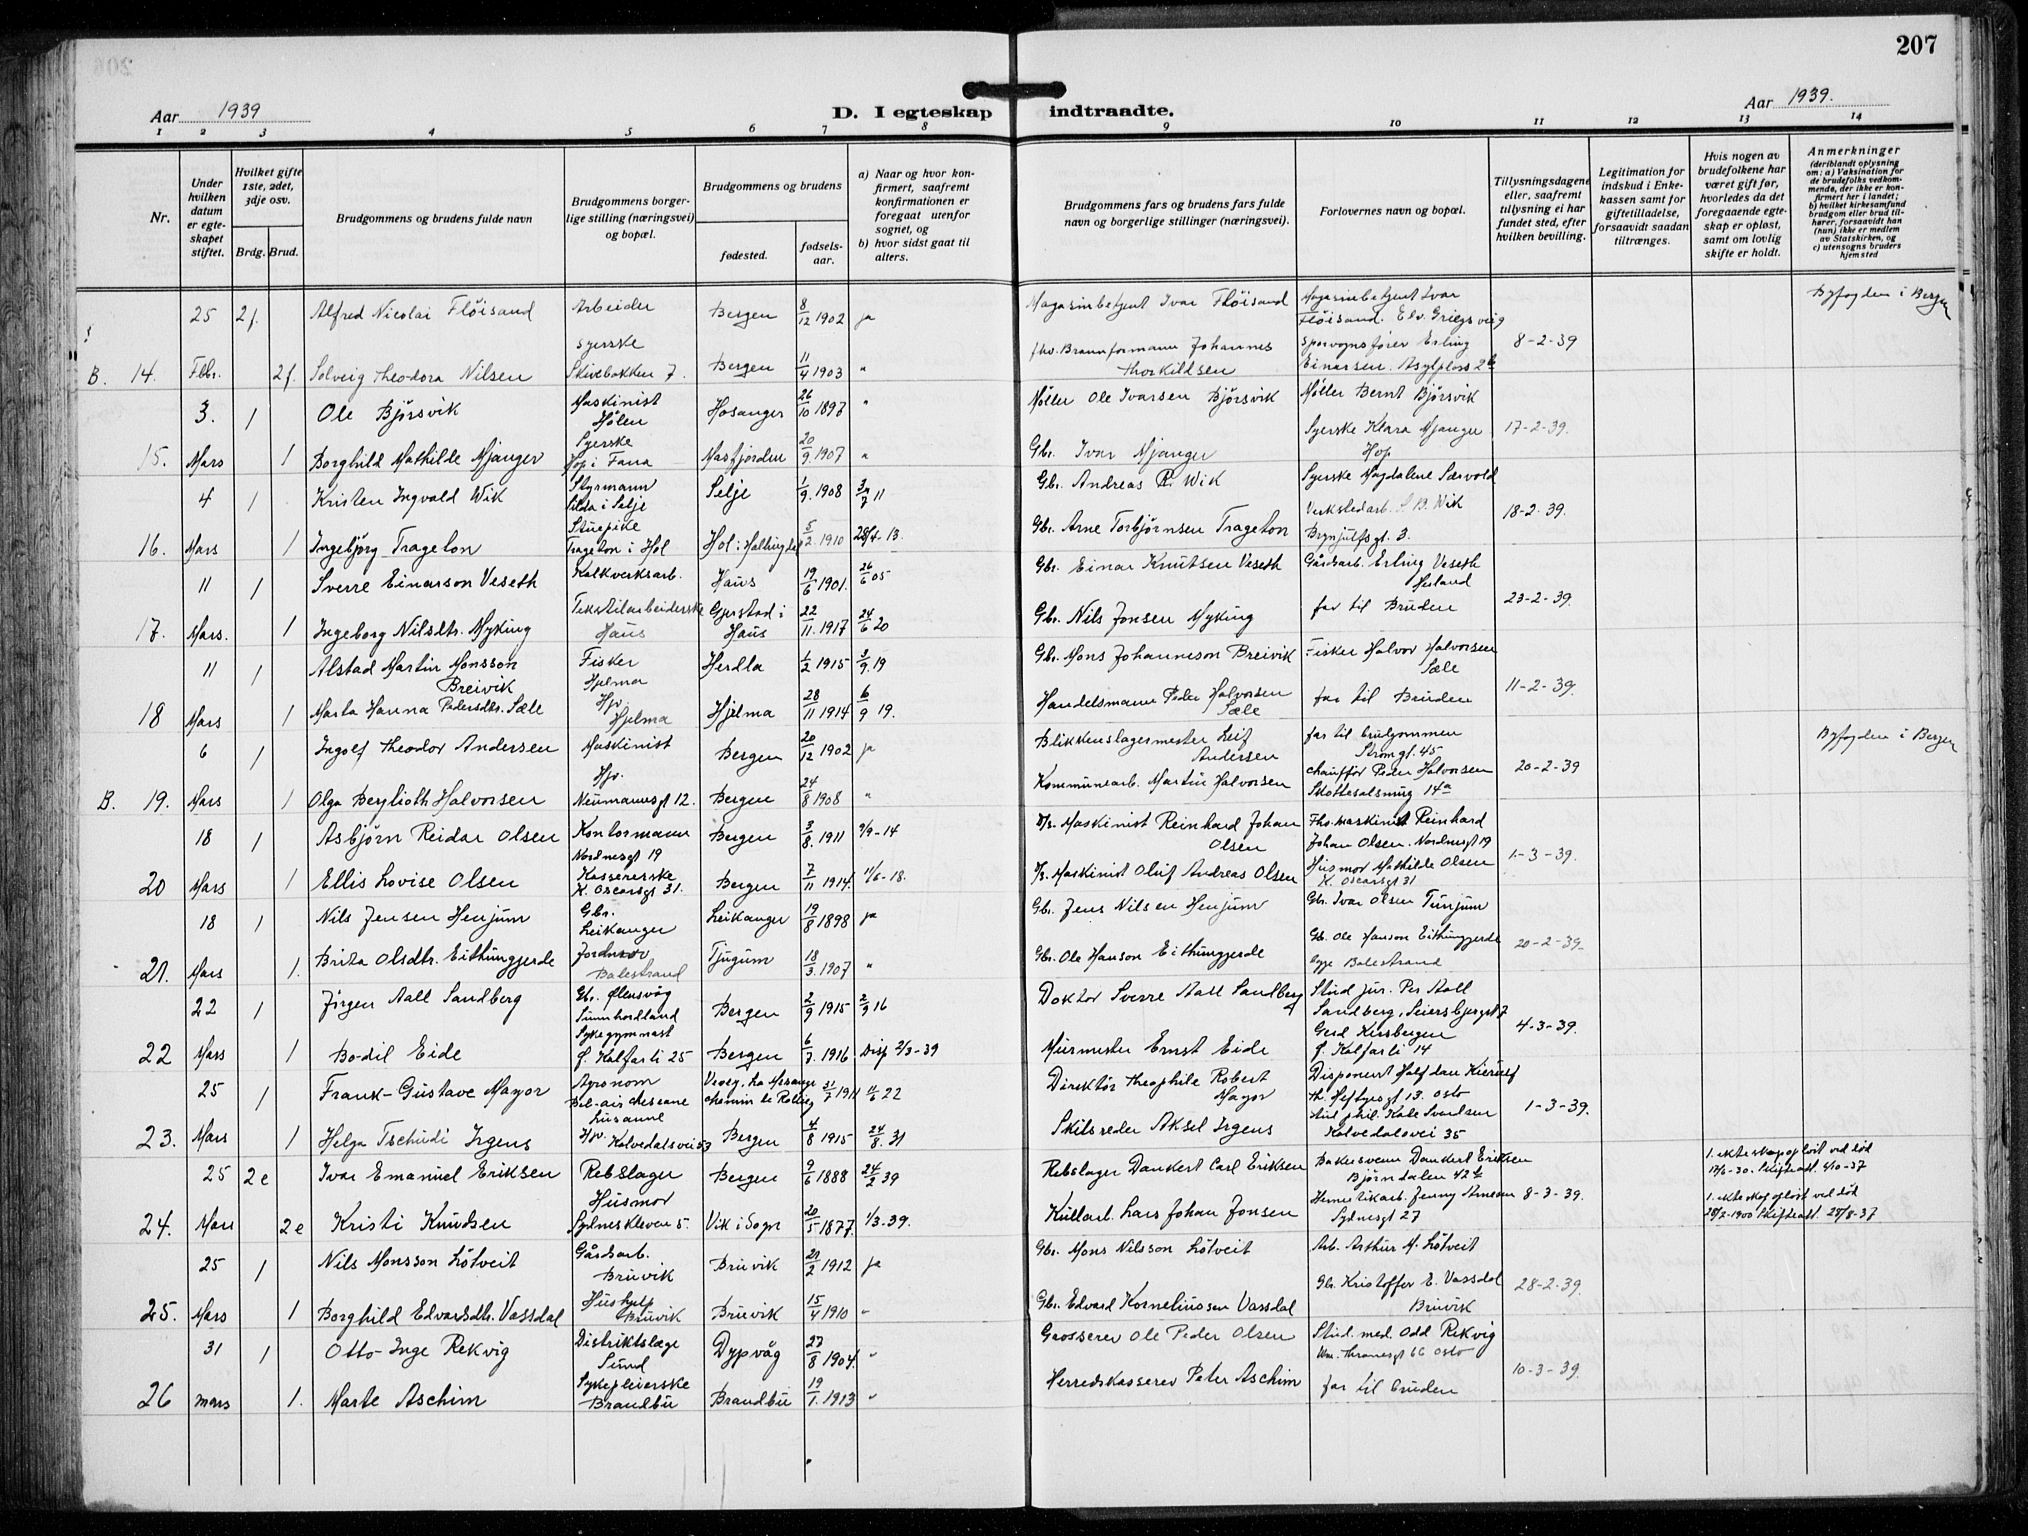 207
Aar 1939
D. I egteskap indtraadte.
Aar 1939.
1 2 3 4 5 6 7 8 9 10 11 12 13 14
Nr.
Under hvilken datum er egteskapet stiftet.
Hvilket gifte 1ste, 2det, 3dje osv.
Brdg. Brud.
Brudgommens og brudens fulde navn
Brudgommens borgerlige stilling (næringsvei) og bopæl.
Brudgommens og brudens
fødested.
fødselsaar.
a) Naar og hvor konfirmert, saafremt konfirmationen er foregaat utenfor sognet, og
b) hvor sidst gaat til alters.
Brudgommens fars og brudens fars fulde navn og borgerlige stillinger (næringsvei).
Forlovernes navn og bopæl.
Tillysningsdagene eller, saafremt tillysning ei har fundet sted, efter hvilken bevilling.
Legitimation for indskud i Enkekassen samt for giftetilladelse, forsaavidt saadan tiltrænges.
Hvis nogen av brudefolkene har været gift før, hvorledes da det foregaaende egteskap er opløst, samt om lovlig skifte er holdt.
Anmerkninger
(deriblandt oplysning om: a) Vaksination for de brudefolks vedkommende, der ikke er konfirmert her i landet; b) hvilket kirkesamfund brudgom eller brud tilhører, forsaavidt han (hun) ikke er medlem av Statskirken, og c) utensogns bruders hjemsted
25 2f. Alfred Nicolai Fløisand Arbeider Bergen 8/12 1902 ja Magasinbetjent Ivar Fløisand Magasinbetjent Ivar Fløisand. Edv. Griegsvei 9 Byfogden i Bergen
B. 14. Febr. 2f. Solveig Theodora Nilsen Syerske Skivebakken 7. Bergen 11/4 1903 " fhv. Brannformann Johannes Thorkildsen Sporvognsfører Erling Einarsen. Asylplass 2b 8-2-39
3. 1 Ole Bjørsvik Maskinist Hølen Hosanger 26/10 1897 " Møller Ole Ivarsen Bjørsvik Møller Bernt Bjørsvik
15. Mars 1 Borghild Mathilde Mjanger Syerske Hop i Fana Masfjorden 20/9. 1907 " Gbr. Ivar Mjanger Syerske Klara Mjanger Hop 17-2-39.
4 1 Kristen Ingvald Wik Styrmann Silda i Selje Selje 1/9. 1908 11 Gbr. Andreas R. Wik Syerske Magdalene Særvold
16. Mars 1 Ingebjørg Trageton Stuepike Trageton i Hol Hol i Hallingdal 5/2. 1910 28/4-13. Gbr. Arne Torbjørnsen Trageton Verkstedarb. Wik Brynjulfsgt. 3. 18-2-39.
11 1 Sverre Einarson Veseth Kalkverksarb. Haus 19/6 1901. 26/6 05 Gbr. Einar Knutsen Veseth Gårdsarb. Erling Veseth Hesland
17. Mars. 1 Ingeborg Nilsdtr. Myking Tekstilarbeiderske Haus Gjerstad i Haus 22/11. 1917 24/6 20 Gbr. Nils Jonsen Myking far til Bruden 23-2-39.
11 1 Alstad Martin Monsson Breivik Fisker Hjelma Herdla 1/2 1915 3/9. 19 Gbr. Mons Johanneson Breivik Fisker Halvor Halvorsen Sæle
18 Mars 1 Marta Hanna Pedersdtr. Sæle Hjv. Hjelma Hjelma 28/11 1914 6/9 19. Handelsmann Peder Halvorsen Sæle far til Bruden 11-2-39.
6 1 Ingolf Theodor Andersen Maskinist Bergen 20/12 1902 ja Blikkenslagermester Leif Andersen far til brudgommen Strømgt. 45 Byfogden i Bergen
B. 19. Mars 1 Olga Berglioth Halvorsen Hjv. Neumannsgt 12. Bergen 24/8 1908 " Kommunearb. Martin Halvorsen chauffør Peder Halvorsen Skottesalsmug 14a 20-2-39
18 1 Asbjørn Reidar Olsen Kontormann Nordnesgt 19 Bergen 3/8. 1911 9/9-14 Maskinist Reinhard Johan Olsen Fhv. maskinist Reinhard Johan Olsen. Nordnesgt 19
20 Mars 1 Ellis Lovise Olsen Kassererske K. Oscarsgt 31. Bergen 7/11 1914. 11/6-18. Maskinist Oluf Andreas Olsen Husmor Mathilde Olsen K. Oscarsgt 31 1-3-39.
18 1 Nils Jensen Henjum Gbr. Leikanger Leikanger 19/8 1898 ja Gbr. Jens Nilsen Henjum Gbr. Ivar Olsen Tunjum
21. Mars 1. Brita Olsdtr. Eithungjerde Jordmor Balestrand Tjugum 18/3. 1907 " Gbr. Ole Hanson Eithungjerde Gb. Ole Hanson Eithungjerde Balestrand 20-2-39-
22 1 Jørgen Aall Sandberg Gbr. Ølensvåg Sunnhordland Bergen 2/9 1915 2/9 16 Doktor Sverre Aall Sandberg Stud jur. Per Aall Sandberg, Seiersbjergst 7
22 Mars 1 Bo-dil Eide Sykegymnast f. Kalfarli 25 Bergen 6/7. 1916 Disp 2/3-39 Murmester Ernst Eide Gerd Kiersbergen f. Kalfarli 14 4-3-39.
25 1 Frank-Gustave Mayor Agronom Bel-air chessane Lusanne 31/7 1911 22 Direktør Theophile Robert Mayor Disponent Halfdan Kierulf Th. Heftyesgt 13. Oslo
23. Mars 1 Helga Tschudi Irgens Hjv. Kalvedalsvei 53 Bergen 4/8 1915 24/8. 31 Skibsreder Aksel Irgens stud. phil. Kalvedalsvei 35 1-3-39.
25 2e Ivar Emanuel Eriksen Rebslager Bergen 9/6 1888 24/2 39 Rebslager Dankert Carl Eriksen Bakersvenn Dankert Eriksen Bjørndalen 42b 1. ekteskap opløst ved død 12/6-30. Skifteatt. 4/10-37
24. Mars 2e Kristi Knudsen Husmor Sydneskleven 5. Vik i Sogn 20/5 1877. 1/3-39. Kullarb. Lars Johan Jonsen Hermetikarb. Jenny Arnesen Sydnesgt 27 8-3-39. 1. ekteskap opløst ved død 28/2-1900 Skifteatt. 28/8-37
25 1 Nils Monsson Løtveit Gårdsarb. Bruvik Bruvik 21/2 1912 ja Gbr. Mons Nilsson Løtveit Arb. Arthur M. Løtveit
25. Mars 1 Borghild Edvardsdtr. Vassdal Hushjelp Bruvik Bruvik 15/4 1910 " Gbr. Edvard Korneliussen Vassdal Gbr. Kristoffer E. Vassdal Bruvik 28-2-39.
31 1 Otto-Inge Rekvig Distriktslæge Sund Dypvåg 27/8 1904. " Grosserer Ole Peder Olsen Stud. med. Odd Rekvig Wm. Thranesgt 66 Oslo
26 mars 1. Marte Aschim Sykepleierske Brandbu Brandbu 19/1. 1913 " Herredskasserer Peter Aschim far til bruden 10-3-39.